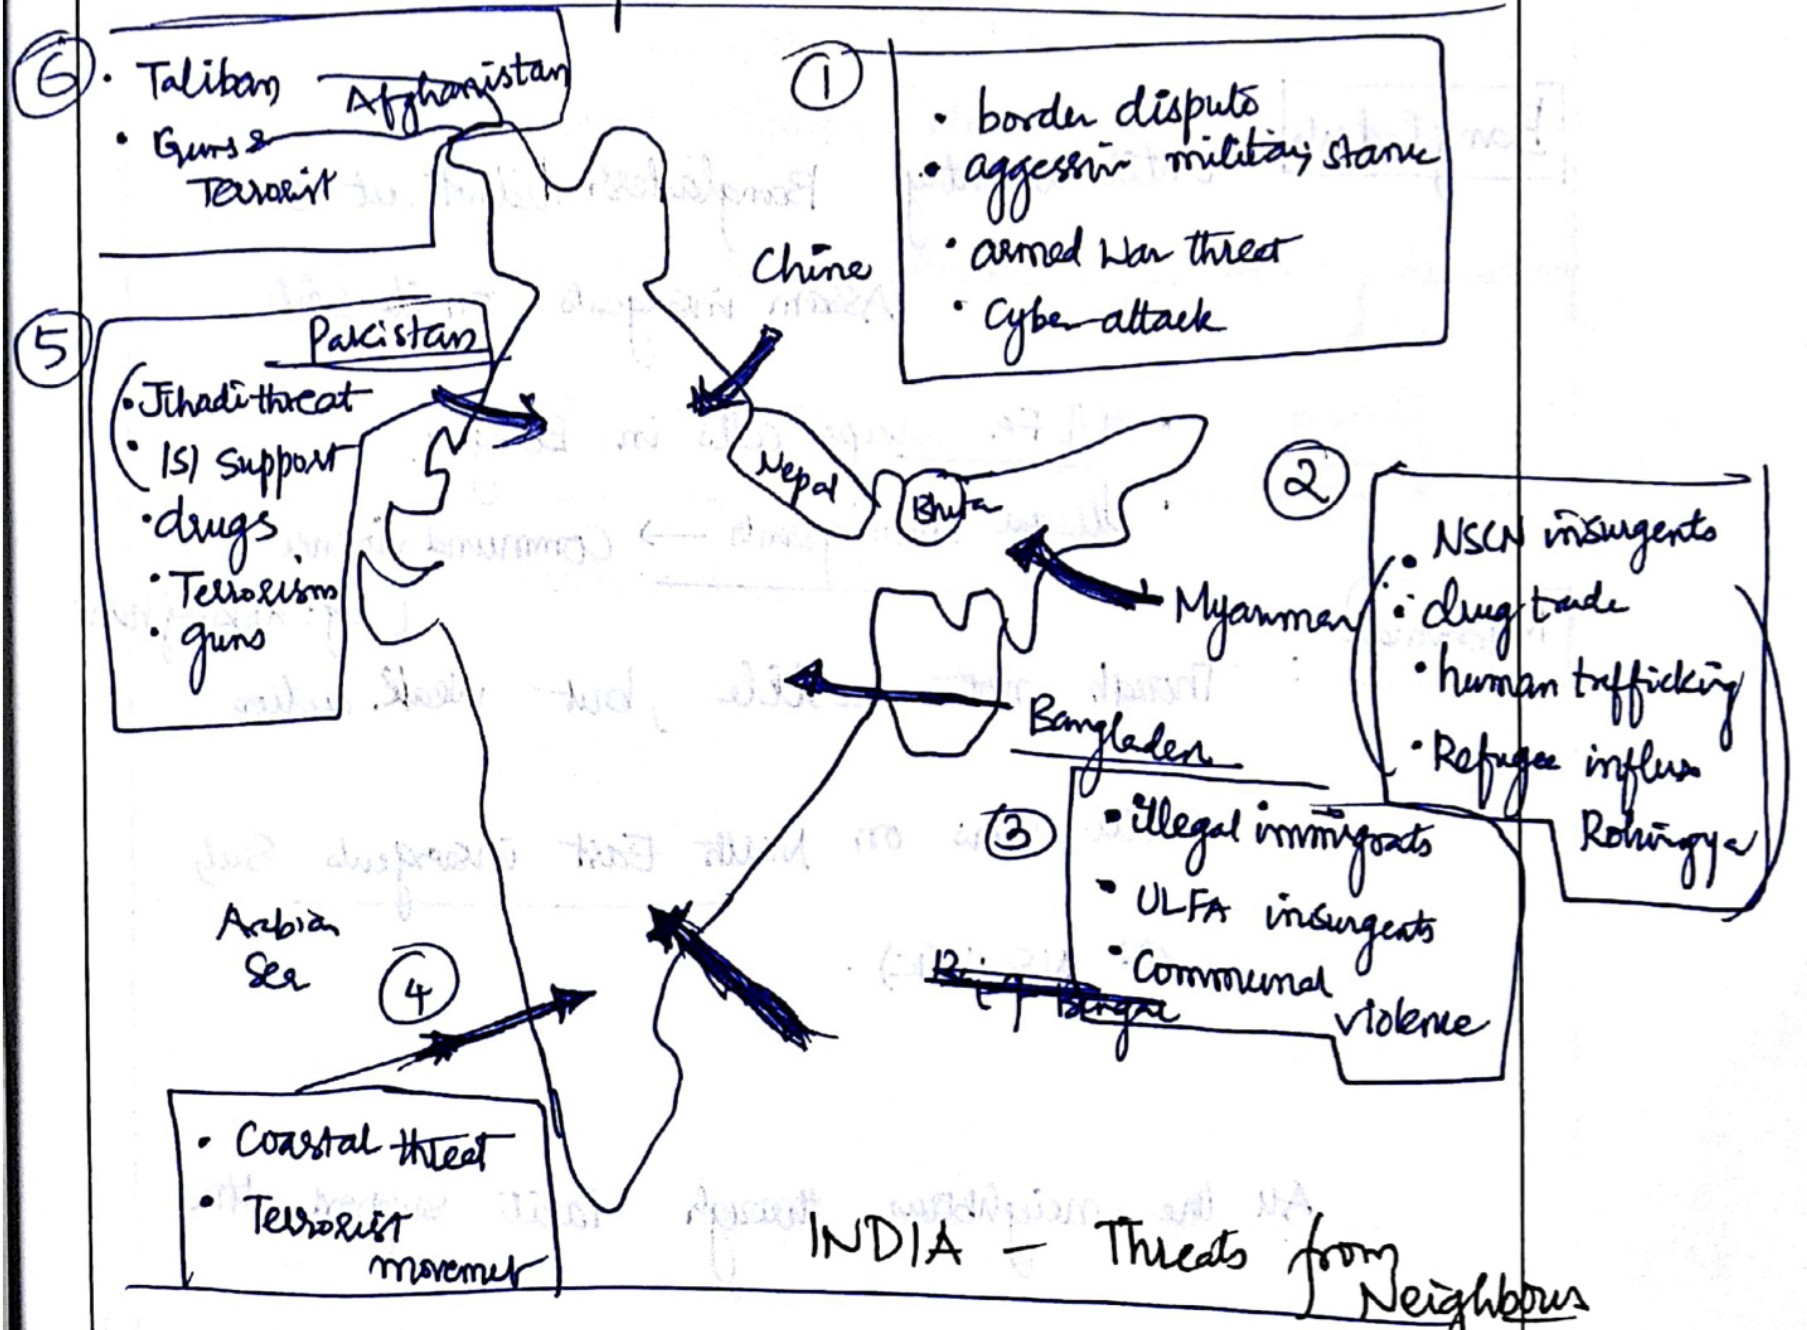 6
• Taliban
Afghanistan
• Guns &
Terrorist
1
• border disputs
• aggessiv military stance
• armed War threat
• Cyber attack
Chine
5
Pakistan
• Jihadi threat
• ISI Support
• drugs
• Terrorism
• guns
Nepal
Bhuta
2
• NSCN insurgents
• drug trade
• human trafficking
• Refugee influx
Rohingya
Myanmar
Bangladesh
3
• illegal immigrats
• ULFA insurgents
• Communal
violence
Bengal
Arabian
Sea
4
• Coastal threat
• Terrorist
movemet
INDIA – Threats from
Neighbours